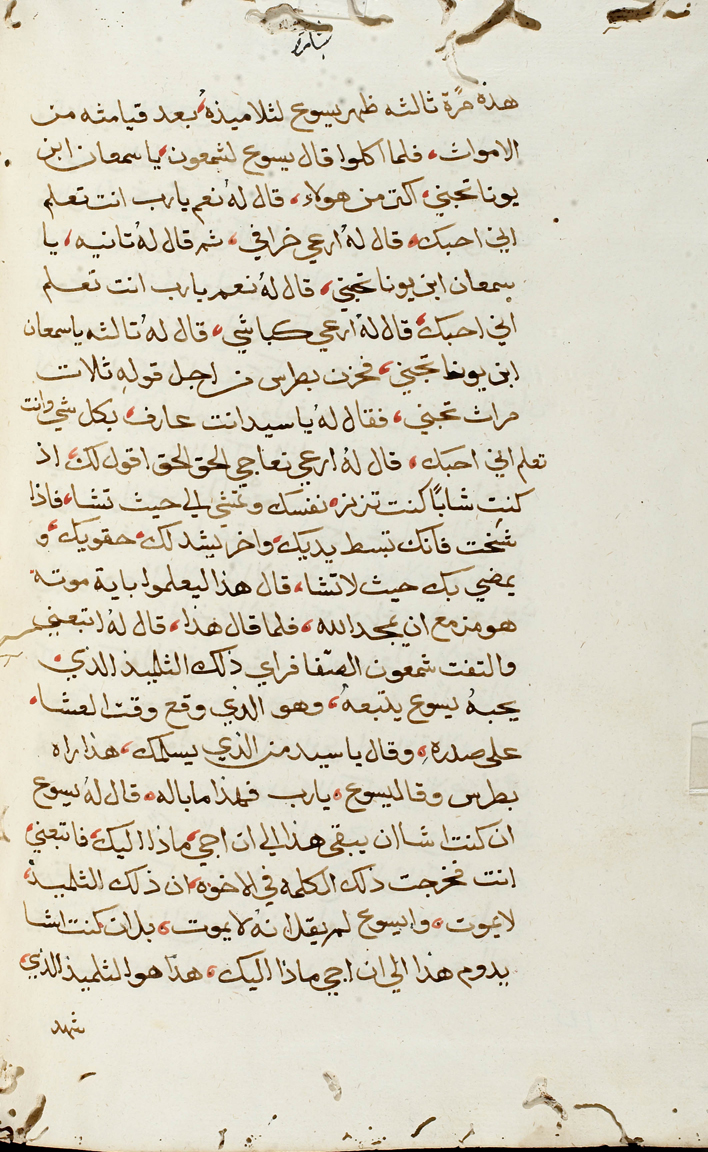 هذه مرة ثالثه ظهر يسوع لتلاميذه بعد قيامته من
الاموات، فلما اكلوا قال يسوع لشمعون، يا سمعان ابن
يونا تحبني، اكتر من هولاء، قال له نعم يارب انت تعلم
اني احبك، قال له ارعي خرافي، ثم قال له تانيه، يا
سمعان ابن يونا تحبني، قال له نعم يارب انت تعلم
اني احبك، قال له ارعي كباشي، قال له تالثه ياسمعان
ابن يونا تحبني، فحزن بطرس من اجل قوله ثلاث
مرات تحبني، فقال له يا سيد انت عارف، بكل شي وانت
تعلم اني احبك، قال له ارعي نعاجي الحق الحق اقول لك، اذ
كنت شابًا كنت تزنره نفسك وتمشي الي حيث تشا، فاذا
شخت فانك تبسط يديك، واخر يشد لك، حقويك، و
يمضي بك حيث لاتشا، قال هذا ليعلموا باية موتة
هو مزمع ان يمجد الله، فلما قال هذا، قال له اتبعني
والتفت شمعون الصفا فراي ذلك التلميذ الذي
يحبه يسوع يتبعه، وهو الذي وقع وقت العشا،
علي صدره، وقال يا سيد من الذي يسلمك، هذا راه
بطرس وقال ليسوع، يارب فهذا ما باله، قال له يسوع
ان كنت اشا ان يبقي هذا الي ان اجي، ماذا اليك، فاتبعني
انت فخرجت ذلك الكلمة في الاخوه، ان ذلك التلميذ،
لايموت، وايسوع لم يقل انه لايموت، بل ان كنت اشا
يدوم هذا الي ان اجي ماذا اليك، هذا هو التلميذ الذي
شهد